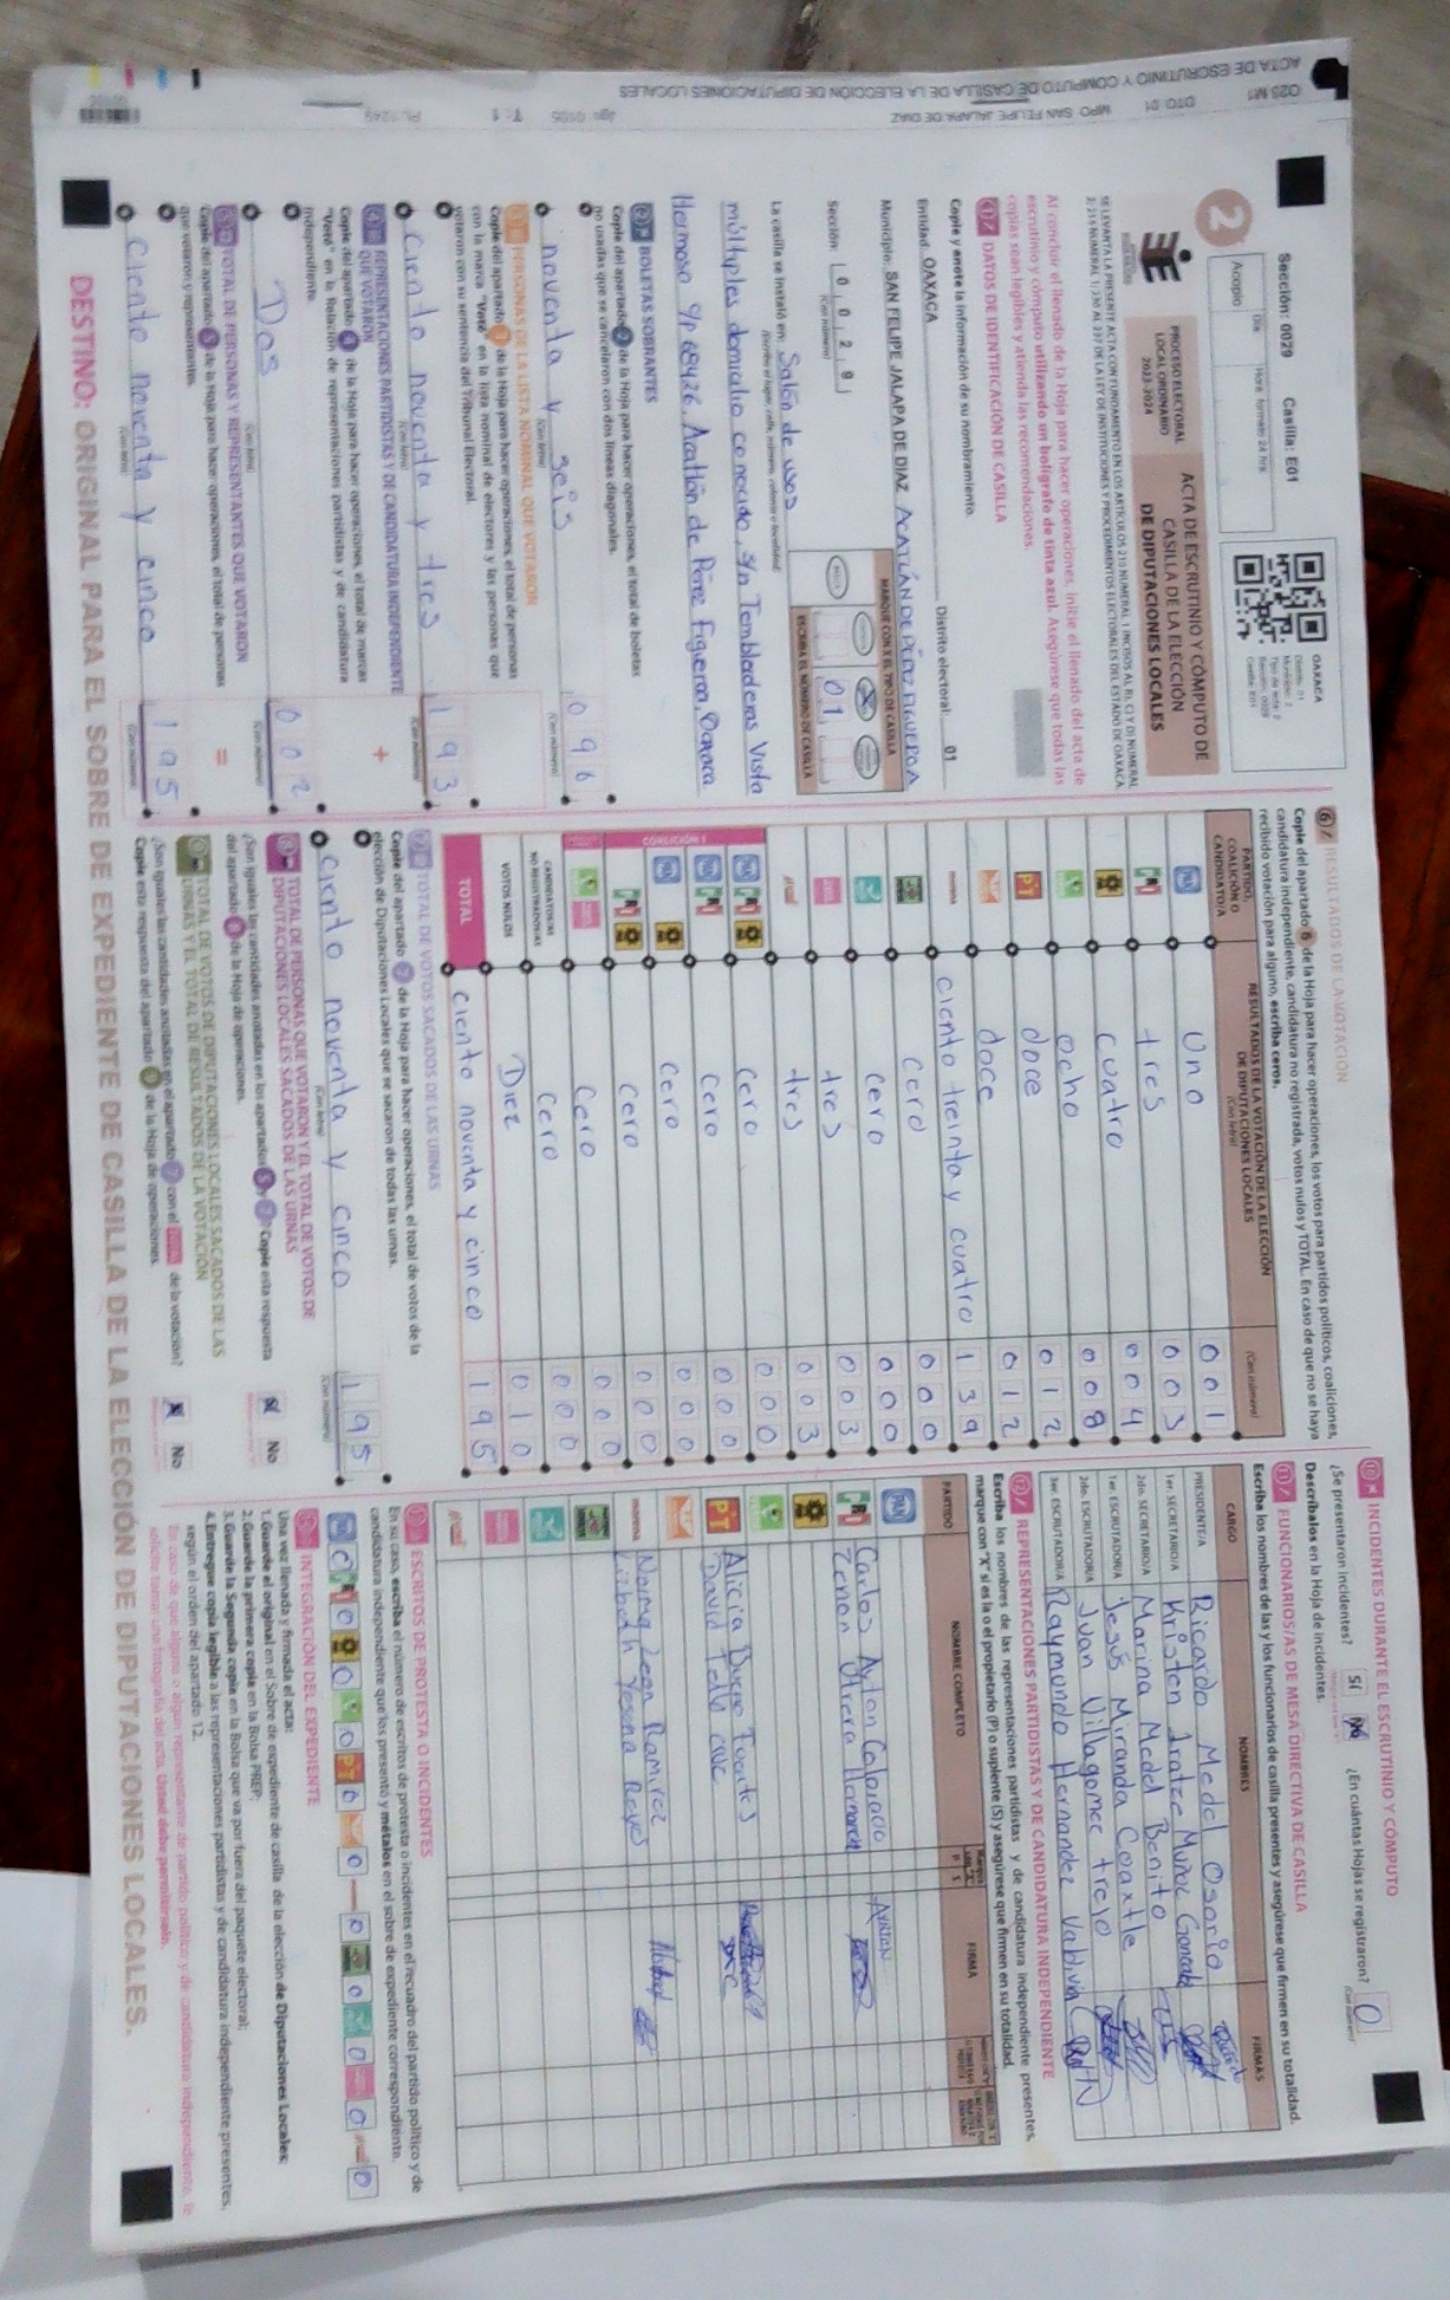 Sección: 0029 Casilla: E01
Acopio
Día
Hora: formato 24 hrs.
2
OAXACA
Distrito: 01
Municipio: 2
Tipo de acta: 2
Sección: 0029
Casilla: E01
PROCESO ELECTORAL
LOCAL ORDINARIO
2023-2024
ACTA DE ESCRUTINIO Y CÓMPUTO DE
CASILLA DE LA ELECCIÓN
DE DIPUTACIONES LOCALES
Al concluir el llenado de la Hoja para hacer operaciones, inicie el llenado del acta de
escrutinio y cómputo utilizando un bolígrafo de tinta azul. Asegúrese que todas las
copias sean legibles y atienda las recomendaciones.
1 DATOS DE IDENTIFICACIÓN DE CASILLA
Copie y anote la información de su nombramiento.
Entidad: OAXACA Distrito electoral: 01
Municipio: SAN FELIPE JALAPA DE DIAZ ACATLÁN DE PÉREZ FIGUEROA
Sección: 0 0 2 9
(Con número)
MARQUE CON X EL TIPO DE CASILLA
X
01
ESCRIBA EL NÚMERO DE CASILLA
La casilla se instaló en: Salón de usos
(Escriba el lugar, calle, número, colonia o localidad)
múltiples domicilio conocido, S/n Tembladeras Vista
Hermoso C/P 68426, Acatlán de Pérez Figueroa, Oaxaca
2 BOLETAS SOBRANTES
Copie del apartado 2 de la Hoja para hacer operaciones, el total de boletas
no usadas que se cancelaron con dos líneas diagonales.
noventa y seis 096
(Con letra) (Con número)
3 PERSONAS DE LA LISTA NOMINAL QUE VOTARON
Copie del apartado 3 de la Hoja para hacer operaciones, el total de personas
con la marca "Votó" en la lista nominal de electores y las personas que
votaron con su sentencia del Tribunal Electoral.
Ciento noventa y tres 193
(Con letra) (Con número)
+
4 REPRESENTACIONES PARTIDISTAS Y DE CANDIDATURA INDEPENDIENTE
QUE VOTARON
Copie del apartado 4 de la Hoja para hacer operaciones, el total de marcas
"Votó" en la Relación de representaciones partidistas y de candidatura
independiente.
Dos 002
(Con letra) (Con número)
=
5 TOTAL DE PERSONAS Y REPRESENTANTES QUE VOTARON
Copie del apartado 5 de la Hoja para hacer operaciones, el total de personas
que votaron y representantes.
Ciento noventa y cinco 195
(Con letra) (Con número)
6 RESULTADOS DE LA VOTACIÓN
Copie del apartado 6 de la Hoja para hacer operaciones, los votos para partidos políticos, coaliciones,
candidatura independiente, candidatura no registrada, votos nulos y TOTAL. En caso de que no se haya
recibido votación para alguno, escriba ceros.
PARTIDO, COALICIÓN O CANDIDATO/A
RESULTADOS DE LA VOTACIÓN DE LA ELECCIÓN
DE DIPUTACIONES LOCALES
(Con letra) (Con número)
PAN Uno 001
PRI tres 003
cuatro 004
ocho 008
PT doce 012
doce 012
morena ciento treinta y cuatro 139
cero 000
cero 000
tres 003
tres 003
COALICIÓN 1
PAN PRI cero 000
PAN PRI cero 000
PAN cero 000
PRI cero 000
cero 000
CANDIDATOS/AS
NO REGISTRADOS/AS cero 000
VOTOS NULOS Diez 010
TOTAL ciento noventa y cinco 195
7 TOTAL DE VOTOS SACADOS DE LAS URNAS
Copie del apartado 7 de la Hoja para hacer operaciones, el total de votos de la
elección de Diputaciones Locales que se sacaron de todas las urnas.
Ciento noventa y cinco 195
(Con letra) (Con número)
8 TOTAL DE PERSONAS QUE VOTARON Y EL TOTAL DE VOTOS DE
DIPUTACIONES LOCALES SACADOS DE LAS URNAS
¿Son iguales las cantidades anotadas en los apartados 5 y 7? Copie esta respuesta
del apartado 8 de la Hoja de operaciones.
Sí No
9 TOTAL DE VOTOS DE DIPUTACIONES LOCALES SACADOS DE LAS
URNAS Y EL TOTAL DE RESULTADOS DE LA VOTACIÓN
¿Son iguales las cantidades anotadas en el apartado 7 con el TOTAL de la votación?
Copie esta respuesta del apartado 9 de la Hoja de operaciones.
No
10 INCIDENTES DURANTE EL ESCRUTINIO Y CÓMPUTO
¿Se presentaron incidentes? Sí No ¿En cuántas Hojas se registraron? 0
Descríbalos en la Hoja de incidentes.
11 FUNCIONARIOS/AS DE MESA DIRECTIVA DE CASILLA
Escriba los nombres de las y los funcionarios de casilla presentes y asegúrese que firmen en su totalidad.
CARGO NOMBRES FIRMAS
PRESIDENTE/A Ricardo Medel Osorio
1er. SECRETARIO/A Kristen Iratze Muñoz Gonzalez
2do. SECRETARIO/A Marina Medel Benito
1er. ESCRUTADOR/A Jesús Miranda Coaxtle
2do. ESCRUTADOR/A Juan Villagomez trejo
3er. ESCRUTADOR/A Raymundo Hernandez Valdivia
12 REPRESENTACIONES PARTIDISTAS Y DE CANDIDATURA INDEPENDIENTE
Escriba los nombres de las representaciones partidistas y de candidatura independiente presentes,
marque con "X" si es la o el propietario (P) o suplente (S) y asegúrese que firmen en su totalidad.
PARTIDO NOMBRE COMPLETO FIRMA
PAN
PRI Carlos Ayton
Zenon Utrera
PT Alicia Bueno Fuentes
David Tello
morena Norma Leon Ramirez
Lizbeth Yesenia Reyes
13 ESCRITOS DE PROTESTA O INCIDENTES
En su caso, escriba el número de escritos de protesta o incidentes en el recuadro del partido político y de
candidatura independiente que los presentó y métalos en el sobre de expediente correspondiente.
PAN 0 PRI 0 0 0 PT 0 0 0 0 0 0 0
INTEGRACIÓN DEL EXPEDIENTE
Una vez llenada y firmada el acta:
1.Guarde el original en el Sobre de expediente de casilla de la elección de Diputaciones Locales;
2.Guarde la primera copia en la Bolsa PREP;
3.Guarde la Segunda copia en la Bolsa que va por fuera del paquete electoral;
4.Entregue copia legible a las representaciones partidistas y de candidatura independiente presentes,
según el orden del apartado 12.
En caso de que alguna o algún representante de partido político y de candidatura independiente, le
solicite tomar una fotografía del acta, Usted debe permitírselo.
DESTINO: ORIGINAL PARA EL SOBRE DE EXPEDIENTE DE CASILLA DE LA ELECCIÓN DE DIPUTACIONES LOCALES.
ACTA DE ESCRUTINIO Y COMPUTO DE CASILLA DE LA ELECCIÓN DE DIPUTACIONES LOCALES
025 M1 DTO 01 MPO SAN FELIPE JALAPA DE DIAZ